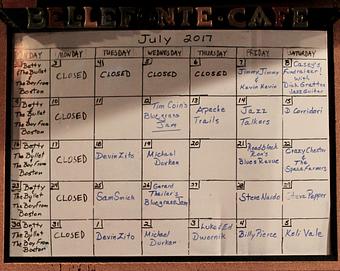 BELLEFONTE CAFE
July 2017
MONDAY TUESDAY WEDNESDAY THURSDAY FRIDAY SATURDAY
Betty
The Bullet
&
The Boy from
Boston
3
CLOSED
4
CLOSED
5
CLOSED
6
CLOSED
7
Jimmy Jimmy
&
Kevin Kevin
8
Casey's
Fundraiser!
with
Dick Gratton
Jazz Guitar
Betty
The Bullet
&
The Boy from
Boston
10
CLOSED
11
12
Tim Coin's
Bluegrass
Jam
13
Apache
Trails
14
Jazz
Talkers
15
D Corridori
Betty
The Bullet
&
The Boy from
Boston
17
CLOSED
18
Davin Zito
19
Michael
Durkan
20
21
Roadblock
Ron's
Blues Revue
22
Crazy Chester
&
The
Space Farmers
Betty
The Bullet
&
The Boy from
Boston
24
CLOSED
25
Sam Smick
26
Gerard
Bluegrass Jam
27
28
Steve Nardo
29
Steve Pepper
Betty
The Bullet
&
The Boy from
Boston
31
CLOSED
1
Davin Zito
2
Michael
Durkan
3
Luke Ed
Dwornik
4
Billy Pierce
5
Keli Vale